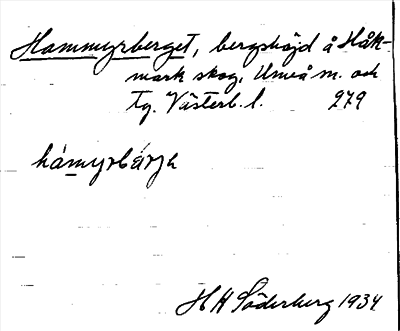 Hammyrberget, bergshöjd å Håk-
mark skog, Umeå m. och
tg. Västerb. l. 279
håmyrbärjh
H H Söderberg 1934